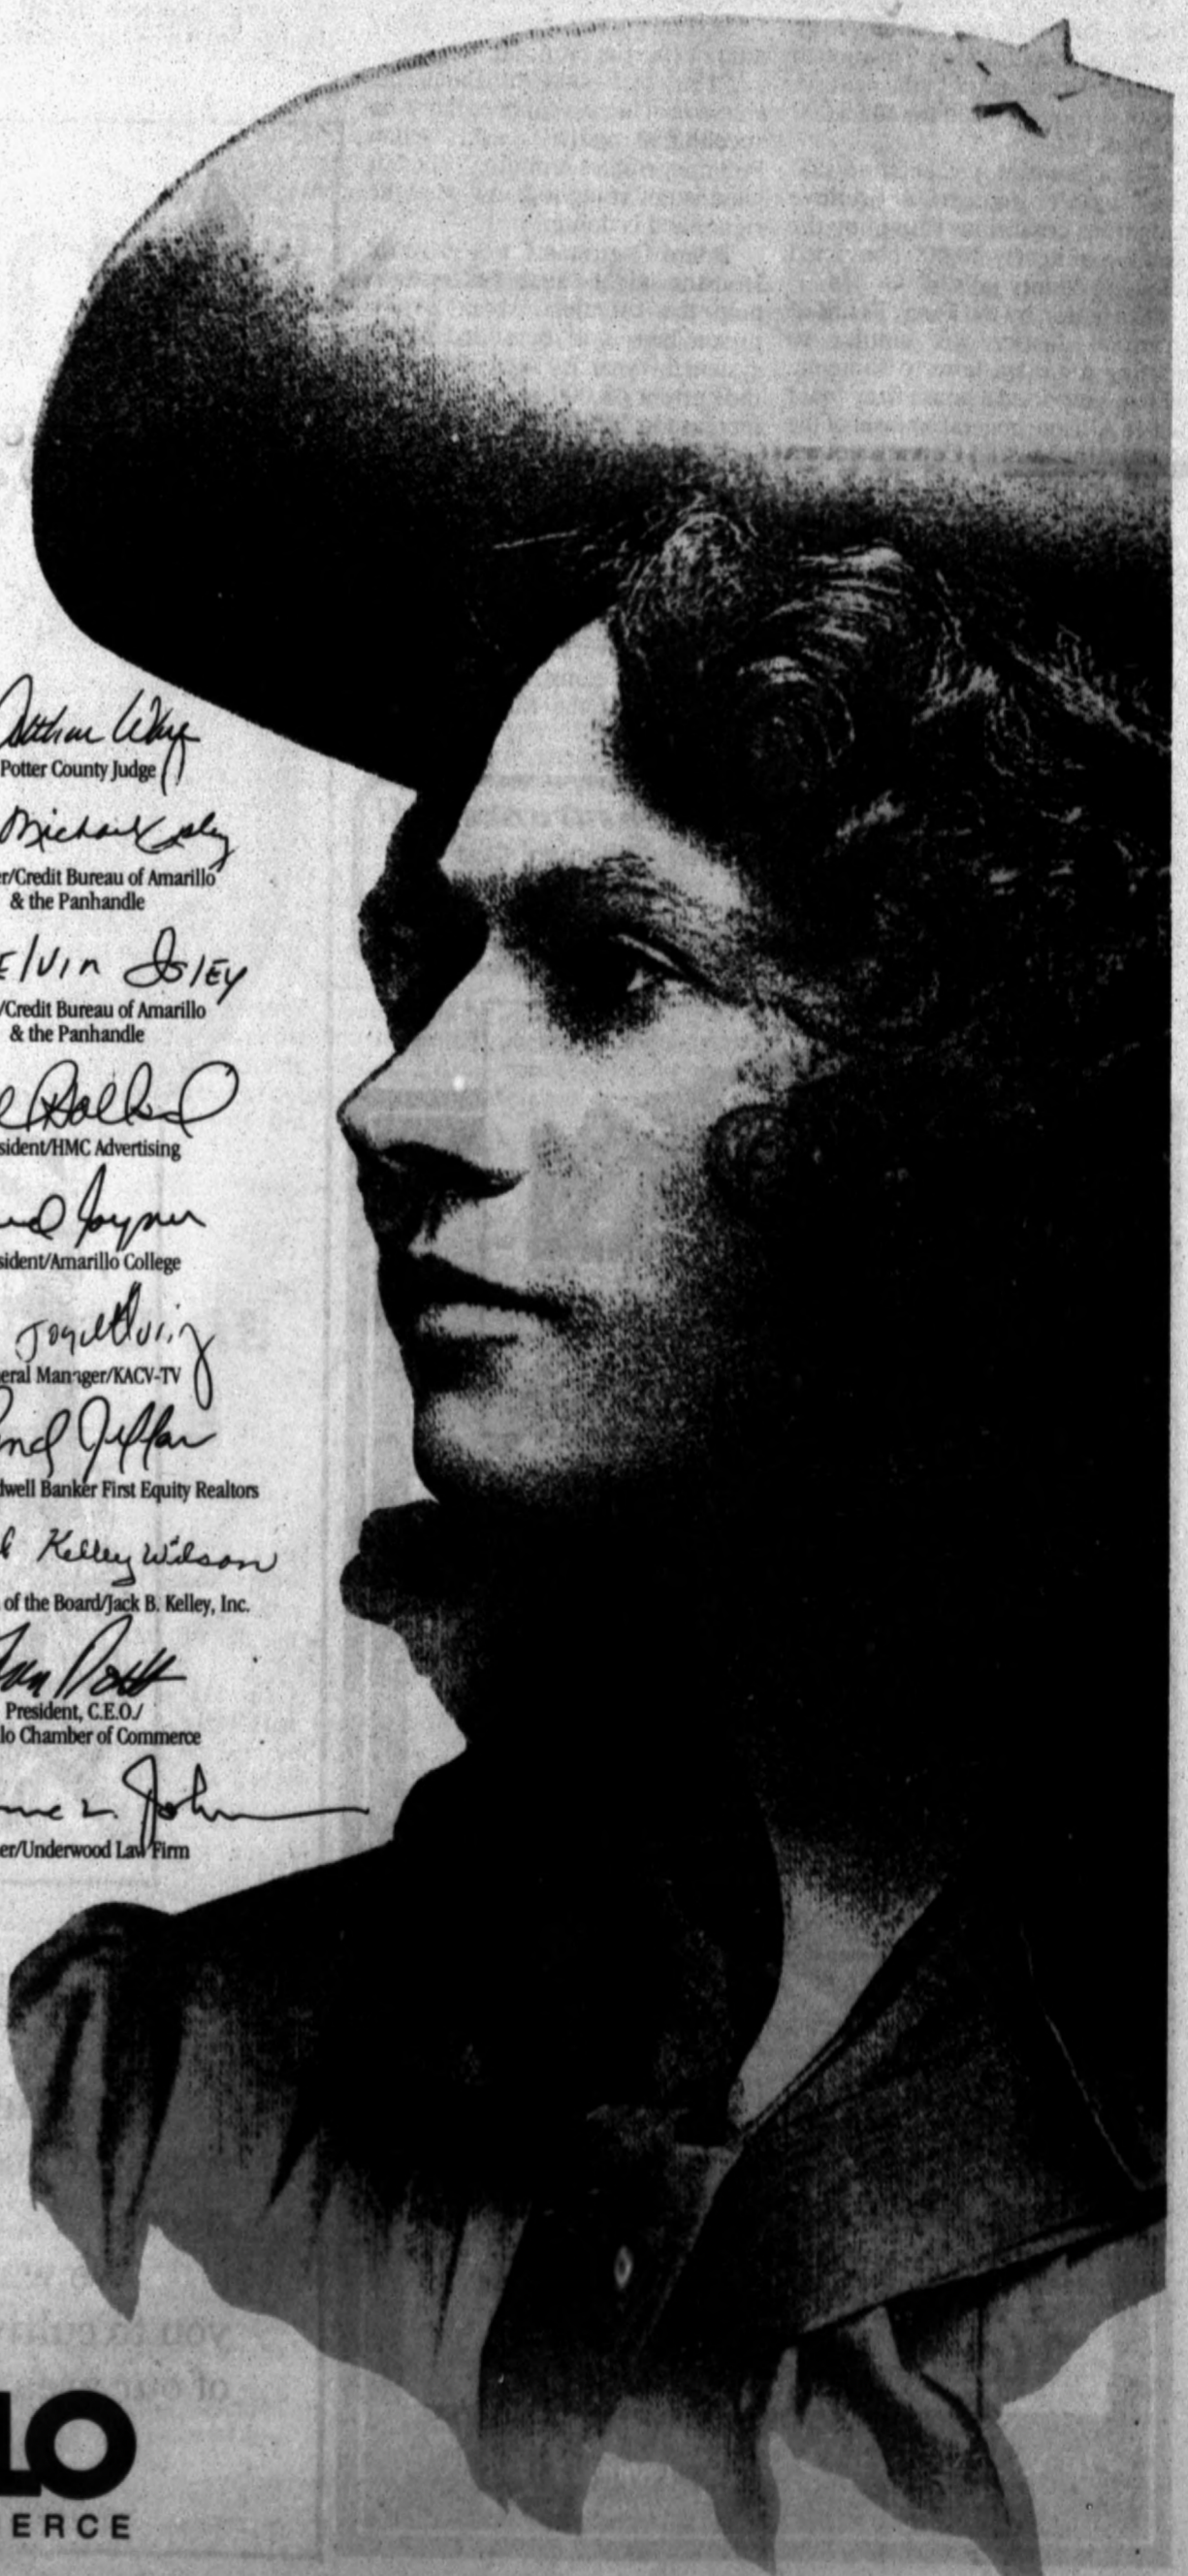 Arthur Ware
Potter County Judge
Michael Isley
er/Credit Bureau of Amarillo
& the Panhandle
elvin Isley
/Credit Bureau of Amarillo
& the Panhandle
sident/HMC Advertising
Joyner
sident/Amarillo College
Joyce
eral Manager/KACV-TV
dwell Banker First Equity Realtors
Kelley Wilson
of the Board/Jack B. Kelley, Inc.
President, C.E.O./
lo Chamber of Commerce
L. John
er/Underwood Law Firm
LO
ERCE